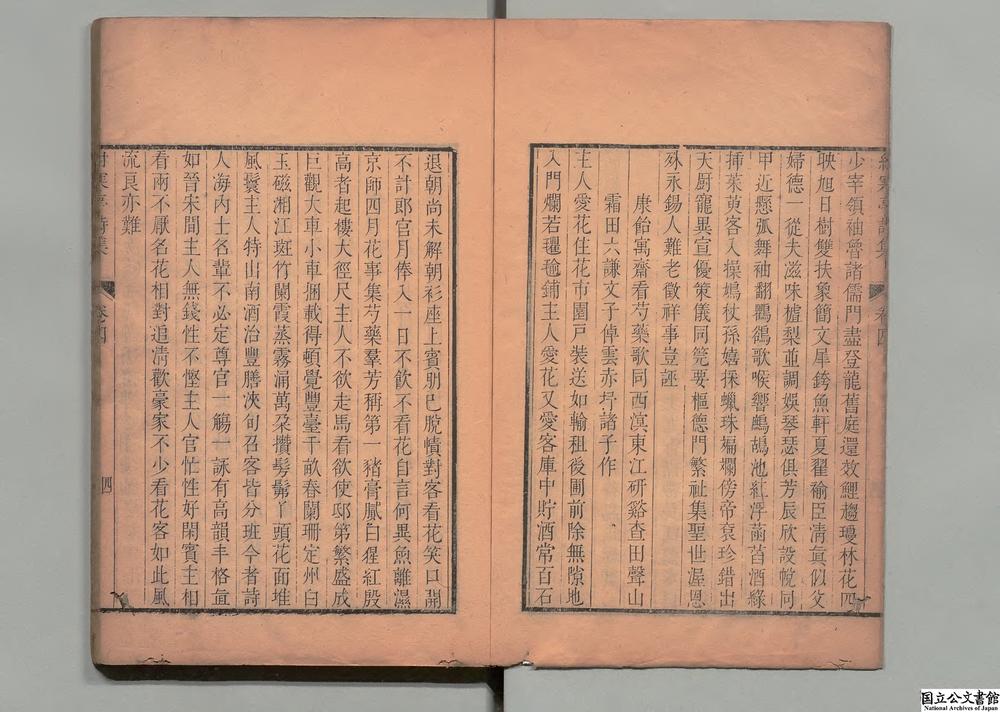 少宰領袖曾諸儒門盡登龍舊庭還效鯉趨瓊林花四
映旭日樹雙扶象簡文犀銙魚軒夏翟褕臣清真似父
婦德一從夫滋味櫨梨並調娛琴瑟俱芳辰欣設帨同
甲近懸弧舞袖翻鸜鵒歌喉響鷓鴣池紅浮菡萏酒綠
挿茱萸客入操鳩杖孫嬉採蠟珠褊斕傍帝袞珍錯出
天厨寵異宣優策儀同筦要樞德門繁祉集聖世渥恩
殊永錫人難老徵祥事豈誣
康飴寓齋看芍藥歌同西溟東江硏谿查田聲山
霜田六謙文子倬雲赤抒諸子作
主人愛花住花市園戸裝送如輸租後圃前除無隙地
入門爛若氍毺鋪主人愛花又愛客庫中貯酒常百石
退朝尚未解朝衫座上賓朋已脫幘對客看花笑口開
不計郎官月俸入一日不飮不看花自言何異魚離濕
京師四月花事集芍藥羣芳稱第一豬膏膩白猩紅殷
高者起樓大徑尺主人不欲走馬看欲使邸第繁盛成
巨觀大車小車捆載得頓覺豐臺千畝春闌珊定州白
玉磁湘江斑竹闌霞蒸霧涌萬朶攢髣髴丫頭花面堆
風鬟主人特山南酒治豐膳浹旬召客皆分班今者詩
人海内士名輩不必定尊官一觴一詠有高韻丰格宜
如晉宋間主人無錢性不慳主人官忙性好閑賓主相
看兩不厭名花相對追清歡豪家不少看花客如此風
流良亦難
寒亭詩集
卷四
四
国立公文書館
National Archives of Japan